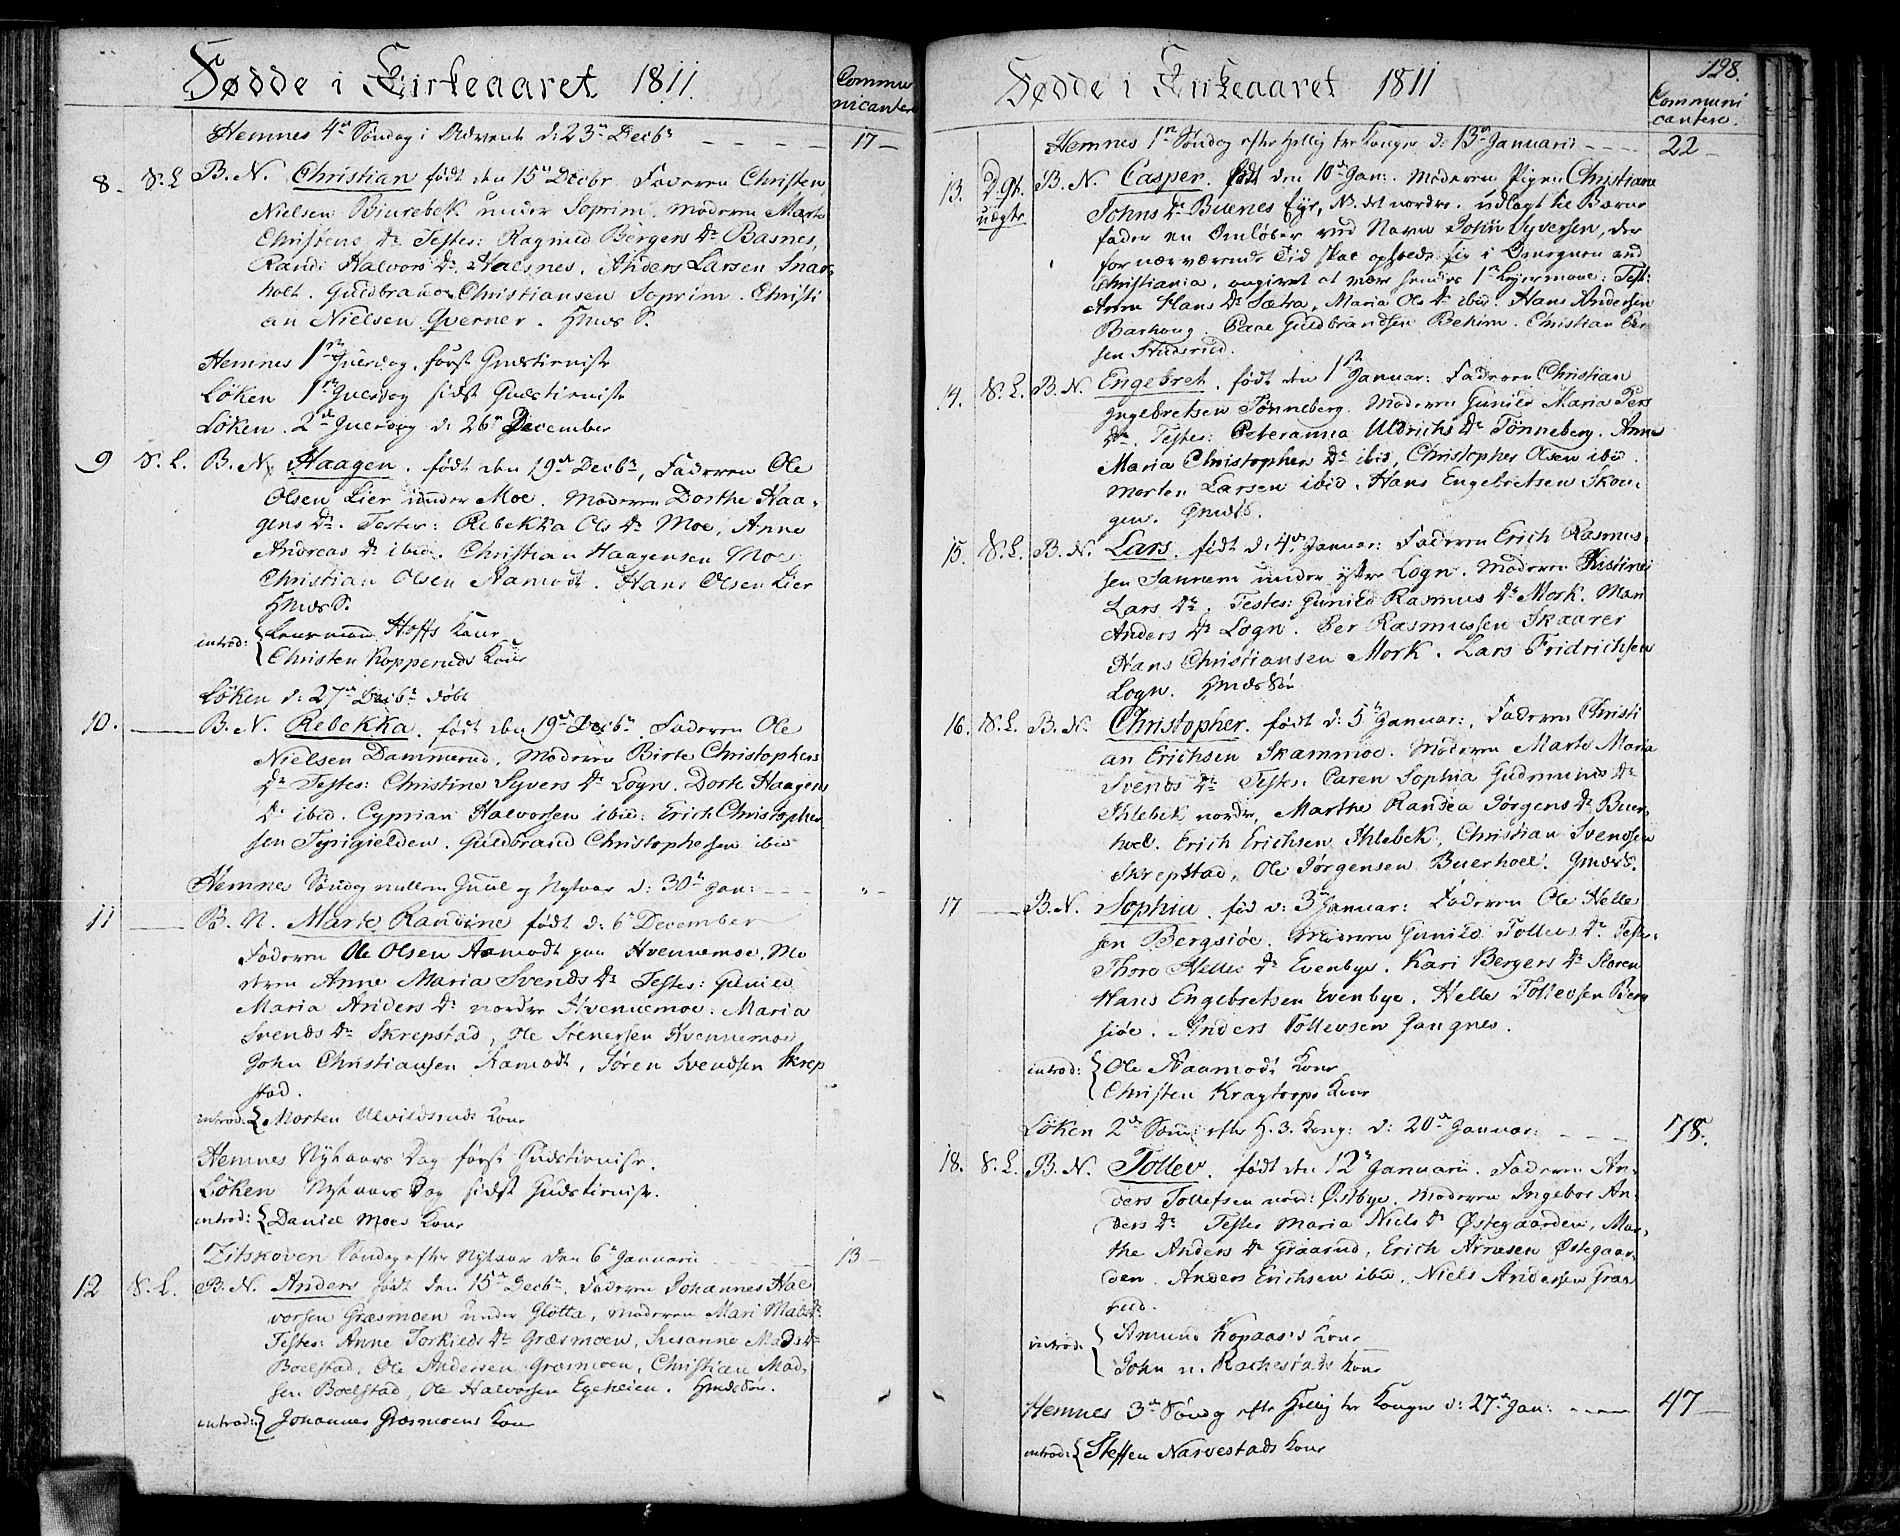 Fødde i Kirkeaaret 1811.
Communicantere
Hemnes 4de Søndag i Advent d: 23de Decbr 17
8. B. N. Christian født den 15de Decbr. Faderen Christen
Nielsen Biurebek under Soprim. Moderen Marte
Christens Dr. Testes: Ragnild Bergers Dr Basnes,
Randi Halvors Dr. Halsnes. Anders Larsen Snar-
holt. Guldbrand Christiansen Soprim. Christi
an Nielsen Qverner.
Hemnes 1ste Juledag. først Gudstieniste
Löken 1ste Juledag sidst Gudstieniste
Löken. 2den Juledag d: 26de December
9 B. N. Haagen. født den 19de Decbr, Faderen Ole
Olsen Lier under Moe. Moderen Dorthe Haa-
gens Dr. Testes: Rebekka Ols Dr Moe, Anne
Andreas Dr ibid. Christian Haagensen Moe
Christian Olsen Aamodt. Hans Olsen Lier
introd: Hoffs Kone
Christen Kopperuds Kone
Löken d: 27de Decbr Døbt
10. B. N. Rebekka. født den 19de Decbr. Faderen Ole
Nielsen Dammerud, Moderen Birte Christophers
Dr Testes: Christine Syvers Dr Logn. Dorte Haagens
Dr ibid. Cyprian Halvorsen ibid: Erich Christopher
sen Tyrigielden. Guldbrand Christophersen ibid
Hemnes Søndag mellem Juul og Nytaar d: 30te Jan:
11 B. N. Marte Randine født d: 6te December
Faderen Ole Olsen Aamodt paa Hvennemoe, Mo
deren Anne Maria Svends Dr Testes: Gunild
Maria Anders Dr nordre Hvennemoe. Maria
Svends Dr Skrepstad, Ole Stenersen Hvennemoe
John Christiansen Aamodt, Sören Svendsen Skrep
stad.
introd: Morten Ulvildsruds Kone
Hemnes Nytaars Dag først Gudstieniste.
Löken Nytaars Dag sidst Gudstieniste.
introd: Daniel Moes Kone
Zitskoven Søndag efter Nytaar den 6te Januarii 13
12 B. N. Anders født den 15de Decbr. Faderen Johannes Hal
vorsen Græsmoen under Glotta, Moderen Mari Mads Dr.
Testes: Anne Torkields Dr Græsmoen, Susanne Mads Dr
Boelstad, Ole Andersen Græsmoen, Christian Mad-
sen Boelstad, Ole Halvorsen Egeheien.
introd: Johannes Græsmoens Kone
Fødde i Kirkeaaret 1811
128.
Communicantere.
Hemnes 1ste Søndag efter Hellig tre Konger d: 13de Januarii 22
13. B. N. Casper. født den 10de Jan: Moderen Pigen Christiane
Johns Dr Buenes Eje, N. det nordre. udlagt til Barne
fader en Omløber ved Navn John Syversen, der
for nærværende Tid skal opholde sig i Omegnen ved
Christiania, angivet at være hendes 1ste Leiermaal: Test:
Anne Hans Dr Sætra, Maria Ols Dr ibid. Hans Andersen
Barhoug. Paul Guldbrandsen Behim. Christian Per
sen Studsrud.
4. S. L. B. N. Engebret. født den 1ste Januar: Faderen Christian
Ingebretsen Tönneberg. Moderen Gunild Maria Pers
Dr. Testes: Peteranna Uldrichs Dr Tönneberg. Anne
Maria Christophers Dr ibid, Christopher Olsen ibid.
Morten Larsen ibid. Hans Engebretsen Skou-
gen.
15. S. L. B. N. Lars. født d: 4de Januar: Faderen Erich Rasmus-
sen Sannem under ytre Logn. Moderen Kistine
Lars Dr. Testes: Gunild Rasmus Dr Mork. Mari
Anders Dr Logn. Per Rasmussen Skaarer
Hans Christiansen Mork. Lars Fridrichsen
Logn.
16. S. L. B. N. Christopher. født d: 5te Januar:, Faderen Christi
an Erichsen Skammoe. Moderen Marte Maria
Svends Dr Testes. Caren Sophia Gudmunds Dr
Ihlebek nordre, Marthe Randea Jørgens Dr Buer-
hoel. Erich Erichsen Ihlebek, Christian Svendsen
Skrepstad, Ole Jørgensen Buerhoel.
17 B. N. Sophia. fød d: 3de Januar: Faderen Ole Helle
sen Bergsiøe. Moderen Gunild Tollevs Dr Teste.
Thore Helles Dr Evenbye. Kari Bergers Dr Storen
Hans Engebretsen Evenbye. Helle Tollevsen Berg
siøe. Anders Tollevsen Gangnes.
introd: Ole Aaamodt Kone
Christen Kragtorps Kone
Löken 2den Sønd: efter H. 3. Kong: d: 20de Januar: 78.
18. S. L. B. N. Tollev. født den 12te Januarii. Faderen An-
ders Tollefsen nord: Østbye. Moderen Ingebor An-
ders Dr Testes Maria Niels Dr Østegaarden, Mar-
the Anders Dr Graarud, Erich Arnesen Østegaar-
den. Anders Erichsen ibid. Niels Andersen Graa
rud.
introd: Amund Kopaas's Kone
John n. Rakkestads Kone
Hemnes 3de Søndg efter Hellig tre Konger d: 27de Jan: 47
introd: Steffen Narvestads Kone